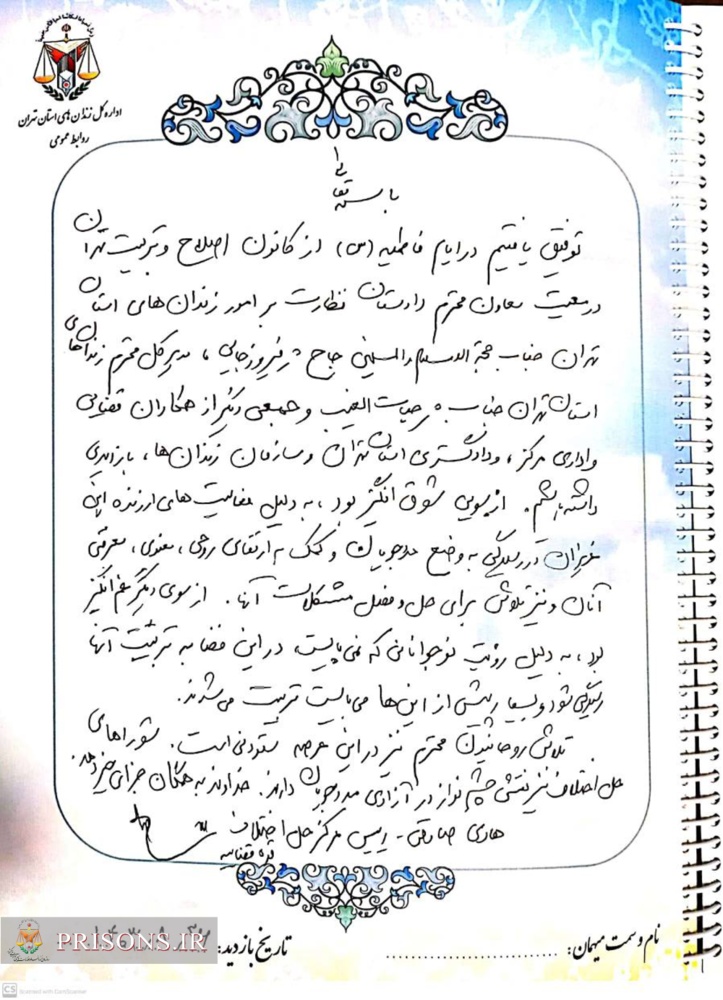 اداره کل زندان های استان تهران
روابط عمومی
باسمه تعالی
توفیق یافتیم در ایام فاطمیه (س) از کانون اصلاح و تربیت تهران
در معیت معاون محترم دادستان نظارت بر امور زندان های استان
تهران جناب حجة الاسلام والمسلمین حاج فیروزجایی، مدیرکل محترم زندانهای
استان تهران جناب حیات الغیب و جمعی دیگر از همکاران قضایی
و اداری مرکز، و دادگستری استان تهران و سازمان زندان ها، بازدیدی
داشته باشیم. از سویی شوق انگیز بود، به دلیل فعالیت های ارزنده این
عزیزان در رسیدگی به وضع مددجویان و کمک به ارتقای روحی، معنوی، معرفتی
آنان و نیز تلاش برای حل و فصل مشکلات آنها. از سوی دیگر غم انگیز
بود، به دلیل رؤیت نوجوانانی که نمی بایست در این فضا به تربیت آنها
رسیدگی شود و بسیار پیش از این ها می بایست تربیت می شدند.
تلاش روحانیون محترم نیز در این عرصه ستودنی است. شوراهای
حل اختلاف نیز نقشی چشم نواز در آزادی مددجویان دارند. خداوند به همگان جزای خیر دهد.
هادی صادقی - رییس مرکز حل اختلاف
قوه قضاییه
نام و سمت میهمان:
تاریخ بازدید:
PRISONS.IR
CS Scanned with CamScanner